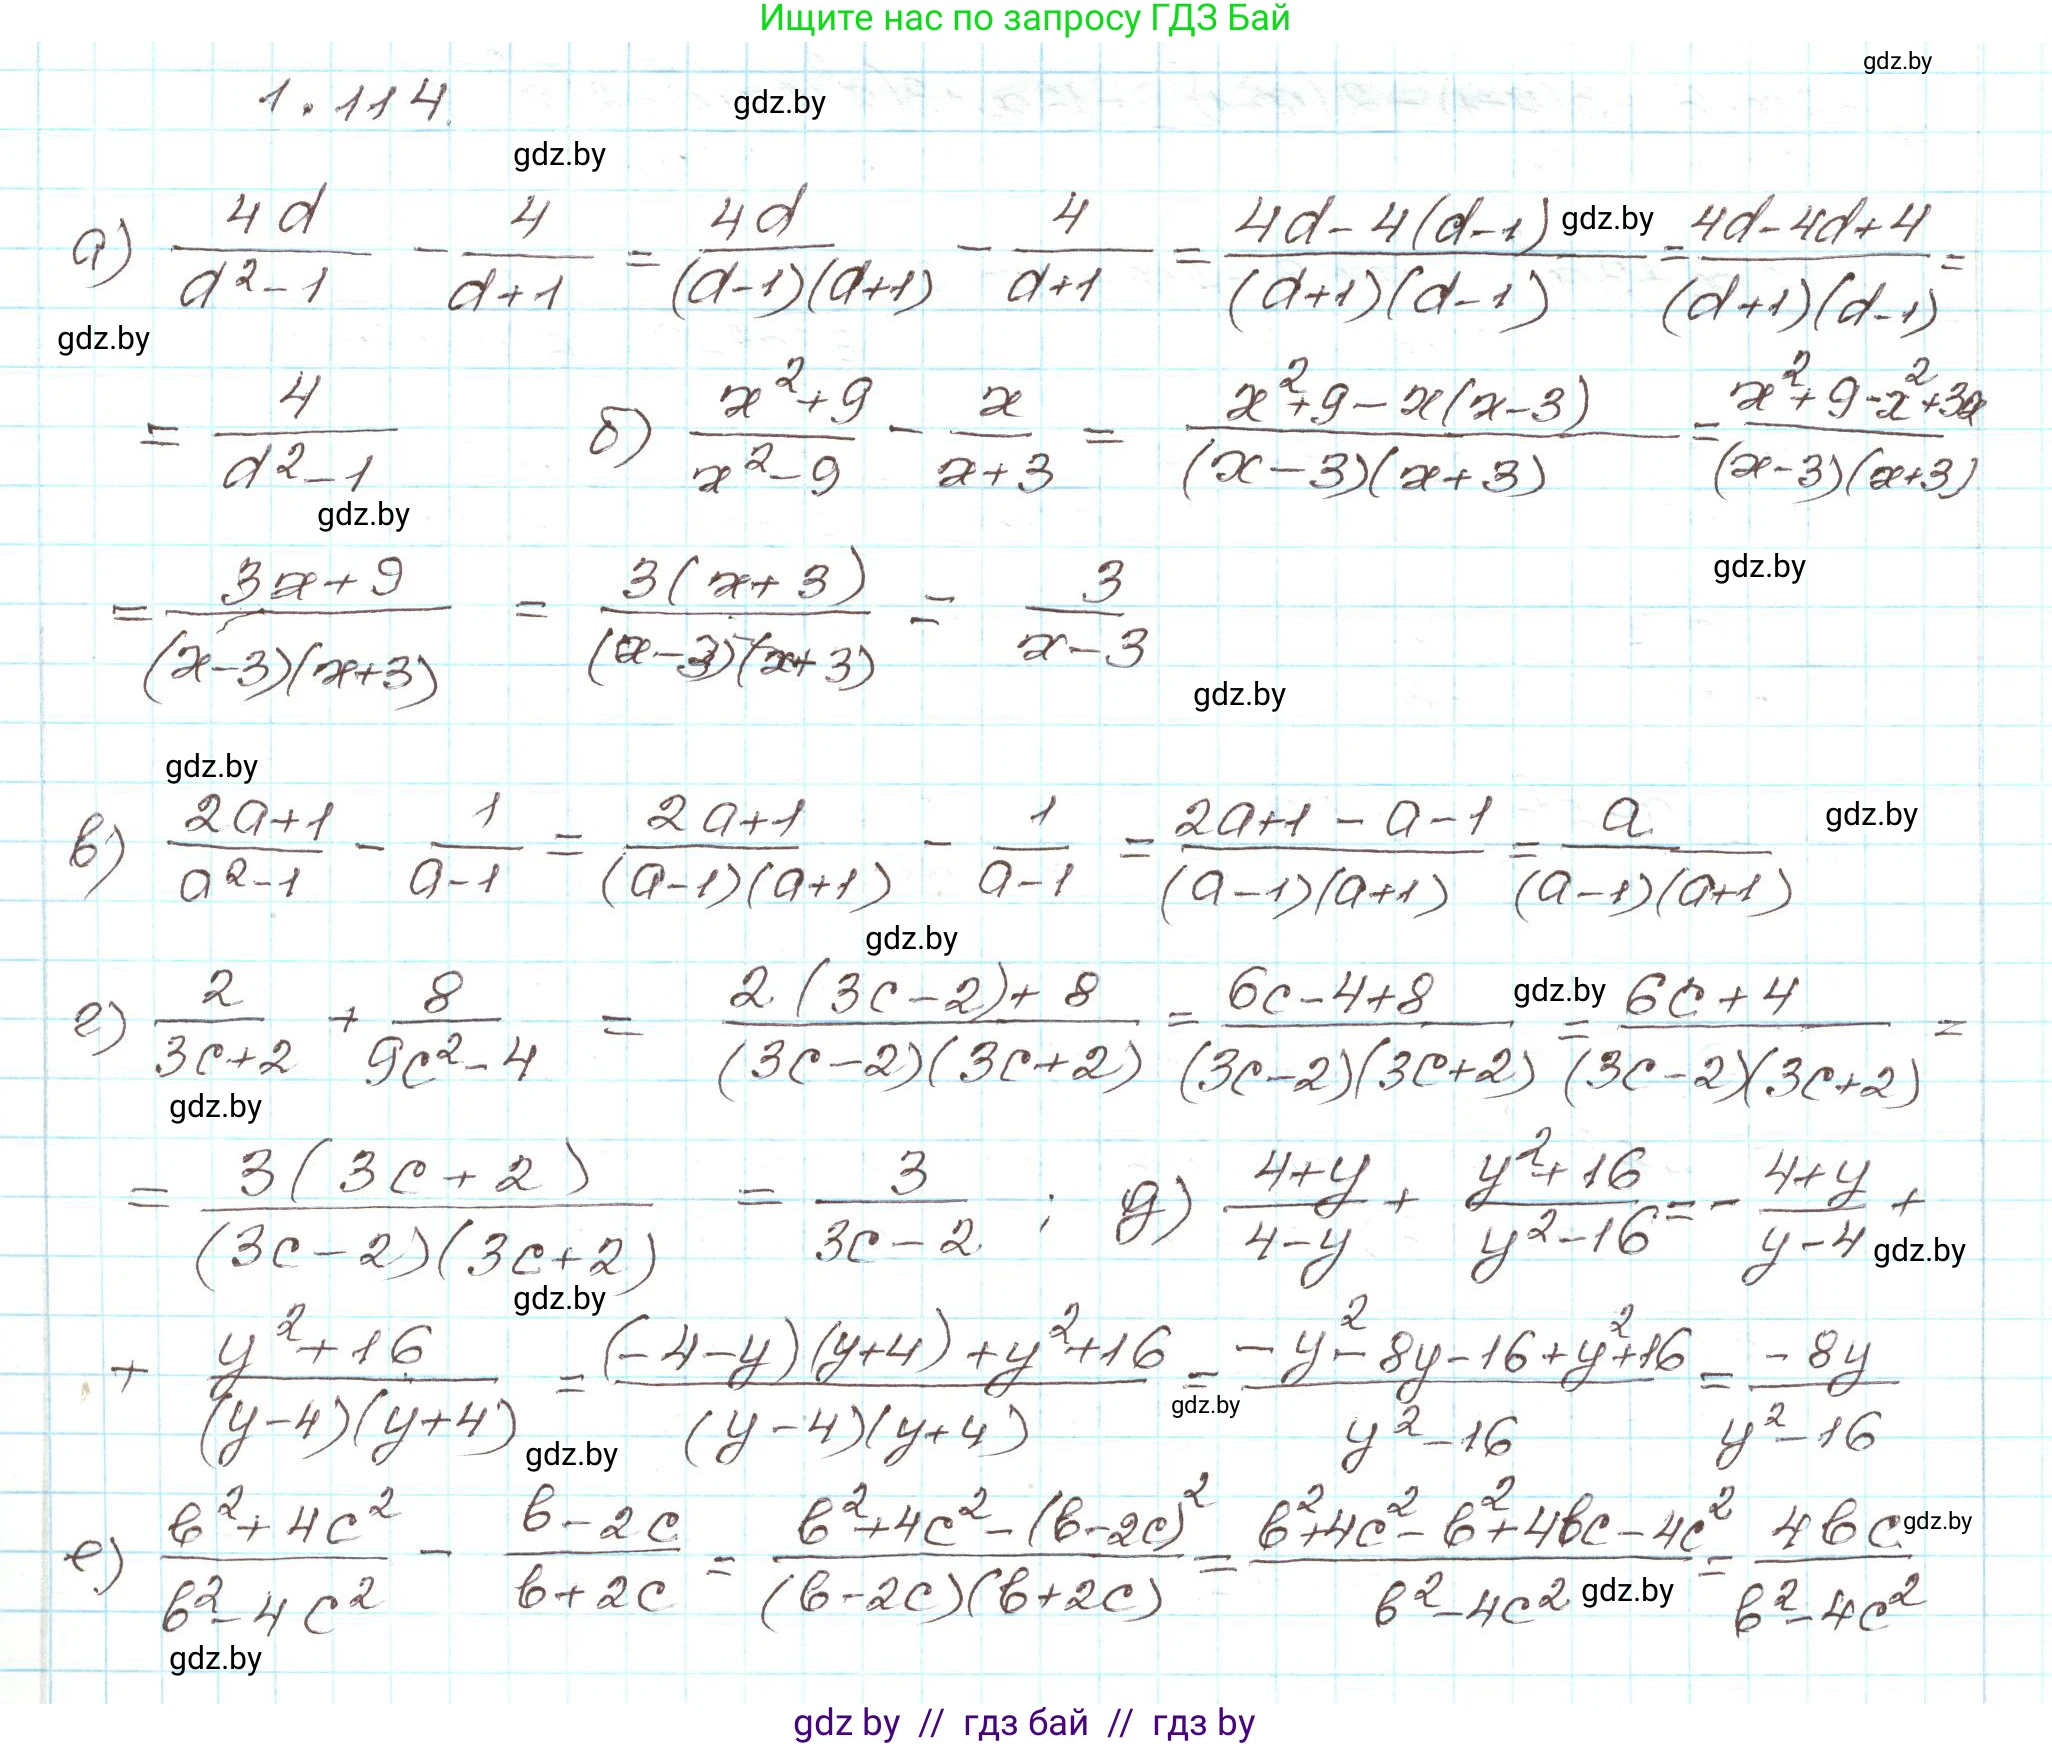 Ищите нас по запросу ГДЗ Бай
gdz.by
1.114.
gdz.by
gdz.by
а) 4d/(d²-1) - 4/(d+1) = 4d/((d-1)(d+1)) - 4/(d+1) = (4d-4(d-1))/((d+1)(d-1)) = (4d-4d+4)/((d+1)(d-1)) =
gdz.by
gdz.by
= 4/(d²-1) б) (x²+9)/(x²-9) - x/(x+3) = (x²+9-x(x-3))/((x-3)(x+3)) = (x²+9-x²+3x)/((x-3)(x+3))
gdz.by
gdz.by
= (3x+9)/((x-3)(x+3)) = 3(x+3)/((x-3)(x+3)) = 3/(x-3)
gdz.by
gdz.by
в) (2a+1)/(a²-1) - 1/(a-1) = (2a+1)/((a-1)(a+1)) - 1/(a-1) = (2a+1-a-1)/((a-1)(a+1)) = a/((a-1)(a+1))
gdz.by
gdz.by
г) 2/(3c+2) + 8/(9c²-4) = (2(3c-2)+8)/((3c-2)(3c+2)) = (6c-4+8)/((3c-2)(3c+2)) = (6c+4)/((3c-2)(3c+2)) =
gdz.by
gdz.by
= 3(3c+2)/((3c-2)(3c+2)) = 3/(3c-2) ; д) (4+y)/(4-y) + (y²+16)/(y²-16) = - (4+y)/(y-4) +
gdz.by
gdz.by
+ (y²+16)/((y-4)(y+4)) = ((-4-y)(y+4)+y²+16)/((y-4)(y+4)) = (-y²-8y-16+y²+16)/(y²-16) = -8y/(y²-16)
gdz.by
gdz.by
е) (в²+4c²)/(в²-4c²) - (в-2c)/(в+2c) = (в²+4c²-(в-2c)²)/((в-2c)(в+2c)) = (в²+4c²-в²+4вc-4c²)/(в²-4c²) = 4вc/(в²-4c²)
gdz.by
gdz.by
gdz.by
gdz by // гдз бай // гдз by